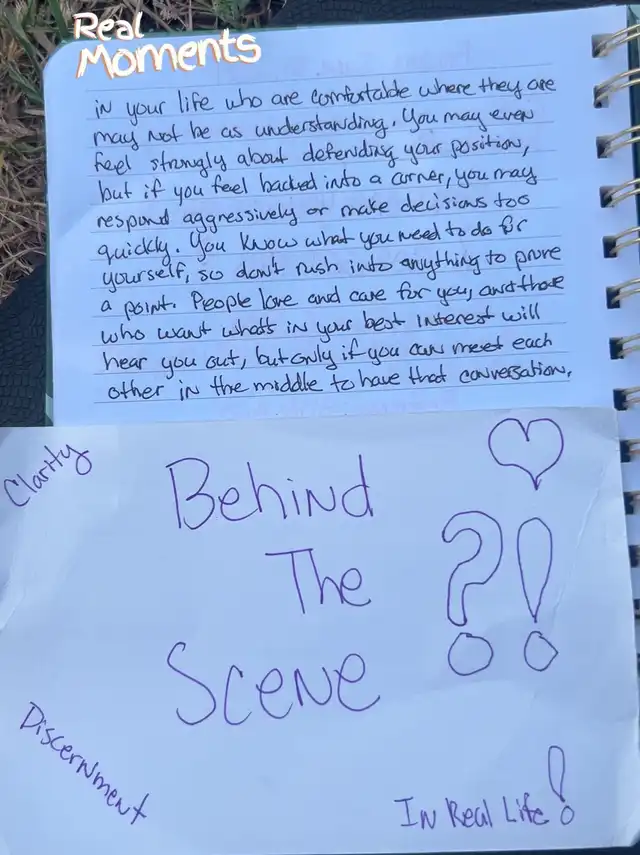 Real
Moments
in your life who are comfortable where they are
may not be as understanding. You may even
feel strongly about defending your position,
but if you feel backed into a corner, you may
respond aggressively or make decisions too
quickly. You know what you need to do for
yourself, so don't rush into anything to prove
a point. People love and care for you, and those
who want what's in your best interest will
hear you out, but only if you can meet each
other in the middle to have that conversation.
Clarity
Behind
The
Scene
?!
Discernment
In Real Life!